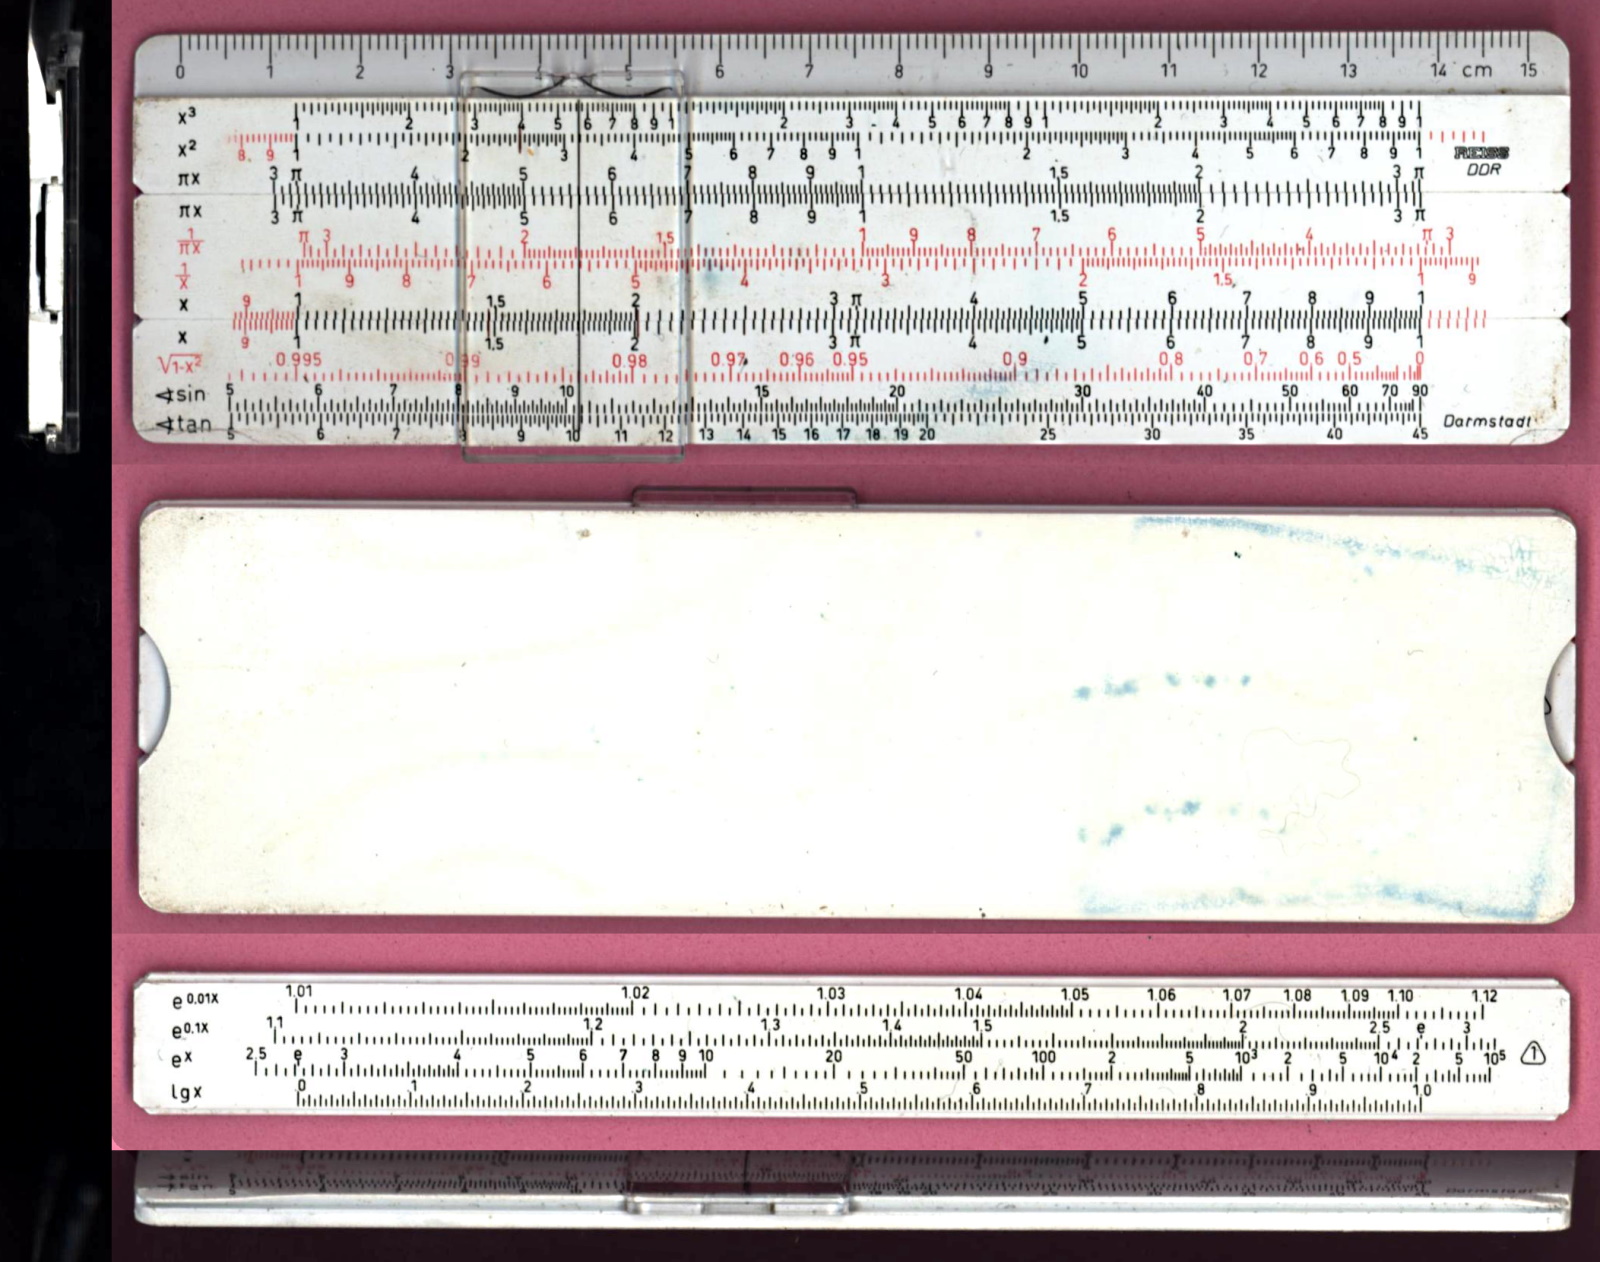 0 1 2 3 4 5 6 7 8 9 10 11 12 13 14 cm 15
x³ 1 2 3 4 5 6 7 8 9 1 2 3 4 5 6 7 8 9 1 2 3 4 5 6 7 8 9 1
x² 8 9 1 2 3 4 5 6 7 8 9 1 2 3 4 5 6 7 8 9 1 REISS
DDR
πx 3 π 4 5 6 7 8 9 1 1,5 2 3 π
πx 3 π 4 5 6 7 8 9 1 1,5 2 3 π
1/πx π 3 2 1,5 1 9 8 7 6 5 4 π 3
1/x 1 9 8 7 6 5 4 3 2 1,5 1 9
x 9 1 1,5 2 3 π 4 5 6 7 8 9 1
x 9 1 1,5 2 3 π 4 5 6 7 8 9 1
√1-x² 0.995 0.99 0.98 0.97 0.96 0.95 0.9 0.8 0.7 0.6 0.5 0
∢sin 5 6 7 8 9 10 15 20 30 40 50 60 70 90
∢tan 5 6 7 8 9 10 11 12 13 14 15 16 17 18 19 20 25 30 35 40 45 Darmstadt
e0.01x 1.01 1.02 1.03 1.04 1.05 1.06 1.07 1.08 1.09 1.10 1.12
e0.1x 1,1 1,2 1,3 1,4 1,5 2 2,5 e 3
eˣ 2,5 e 3 4 5 6 7 8 9 10 20 50 100 2 5 10³ 2 5 10⁴ 2 5 10⁵ 1
lg x 0 .1 .2 .3 .4 .5 .6 .7 .8 .9 1,0